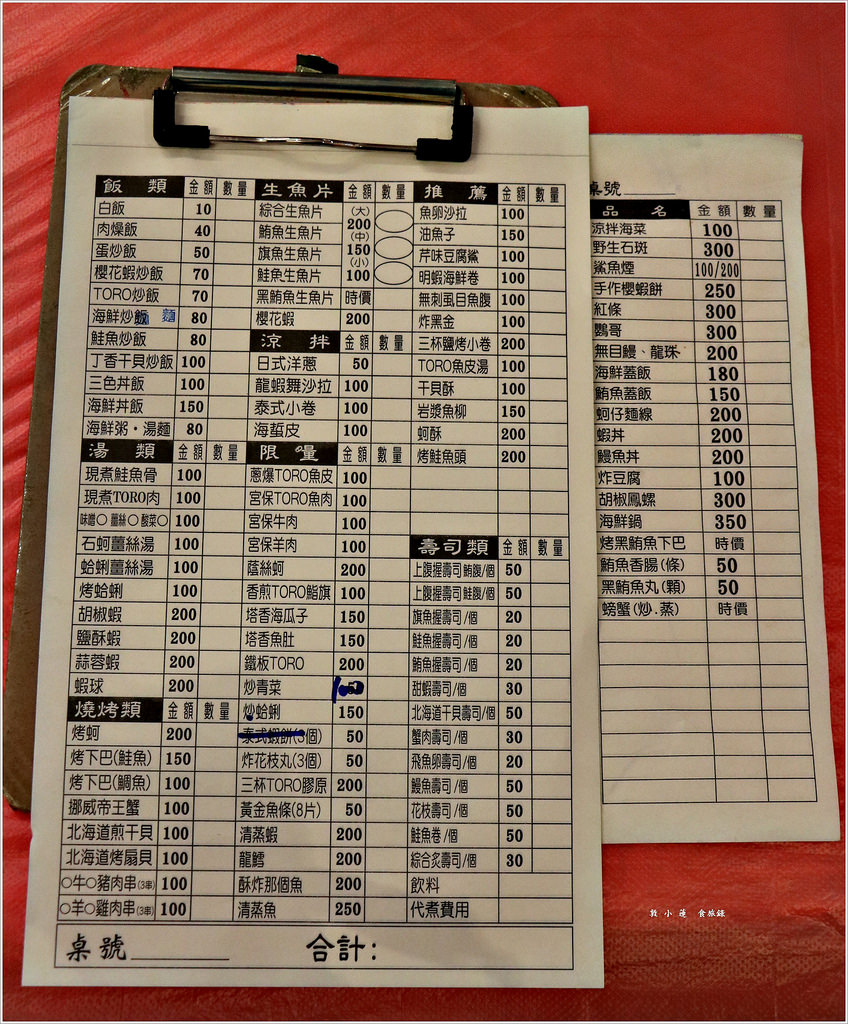 飯類 金額 數量
白飯 10
肉燥飯 40
蛋炒飯 50
櫻花蝦炒飯 70
TORO炒飯 70
海鮮炒飯 麵 80
鮭魚炒飯 80
丁香干貝炒飯 100
三色丼飯 100
海鮮丼飯 150
海鮮粥・湯麵 80
湯類 金額 數量
現煮鮭魚骨 100
現煮TORO肉 100
味噌○ 薑絲○ 酸菜○ 100
石蚵薑絲湯 100
蛤蜊薑絲湯 100
烤蛤蜊 100
胡椒蝦 200
鹽酥蝦 200
蒜蓉蝦 200
蝦球 200
燒烤類 金額 數量
烤蚵 200
烤下巴(鮭魚) 150
烤下巴(鯛魚) 100
挪威帝王蟹 100
北海道煎干貝 100
北海道烤扇貝 100
○牛○豬肉串(3串) 100
○羊○雞肉串(3串) 100
生魚片 金額 數量
綜合生魚片 (大)
鮪魚生魚片 200
(中)
旗魚生魚片 150
(小)
鮭魚生魚片 100
黑鮪魚生魚片 時價
櫻花蝦 200
涼拌 金額 數量
日式洋蔥 50
龍蝦舞沙拉 100
泰式小卷 100
海蜇皮 100
限量 金額 數量
蔥爆TORO魚皮 100
宮保TORO魚肉 100
宮保牛肉 100
宮保羊肉 100
蔭絲蚵 200
香煎TORO鮨旗 100
塔香海瓜子 150
塔香魚肚 150
鐵板TORO 200
炒青菜 100
炒蛤蜊 150
泰式蝦餅(3個) 50
炸花枝丸(3個) 50
三杯TORO膠原 200
黃金魚條(8片) 50
清蒸蝦 200
龍鱈 200
酥炸那個魚 200
清蒸魚 250
推薦 金額 數量
魚卵沙拉 100
油魚子 150
芹味豆腐鯊 100
明蝦海鮮卷 100
無刺虱目魚腹 100
炸黑金 100
三杯鹽烤小卷 200
TORO魚皮湯 100
干貝酥 100
岩漿魚柳 150
蚵酥 200
烤鮭魚頭 200
壽司類 金額 數量
上腹握壽司鮪腹/個 50
上腹握壽司鮭腹/個 50
旗魚握壽司/個 20
鮭魚握壽司/個 20
鮪魚握壽司/個 20
甜蝦壽司/個 30
北海道干貝壽司/個 50
蟹肉壽司/個 30
飛魚卵壽司/個 20
鰻魚壽司/個 50
花枝壽司/個 50
鮭魚卷/個 50
綜合炙壽司/個 30
飲料
代煮費用
桌號 合計:
桌號
品名 金額 數量
涼拌海菜 100
野生石斑 300
鯊魚煙 100/200
手作櫻蝦餅 250
紅條 300
鸚哥 300
無目鰻、龍珠 200
海鮮蓋飯 180
鮪魚蓋飯 150
蚵仔麵線 200
蝦丼 200
鰻魚丼 200
炸豆腐 100
胡椒鳳螺 300
海鮮鍋 350
烤黑鮪魚下巴 時價
鮪魚香腸(條) 50
黑鮪魚丸(顆) 50
螃蟹(炒.蒸) 時價
敦小蓮 食旅錄